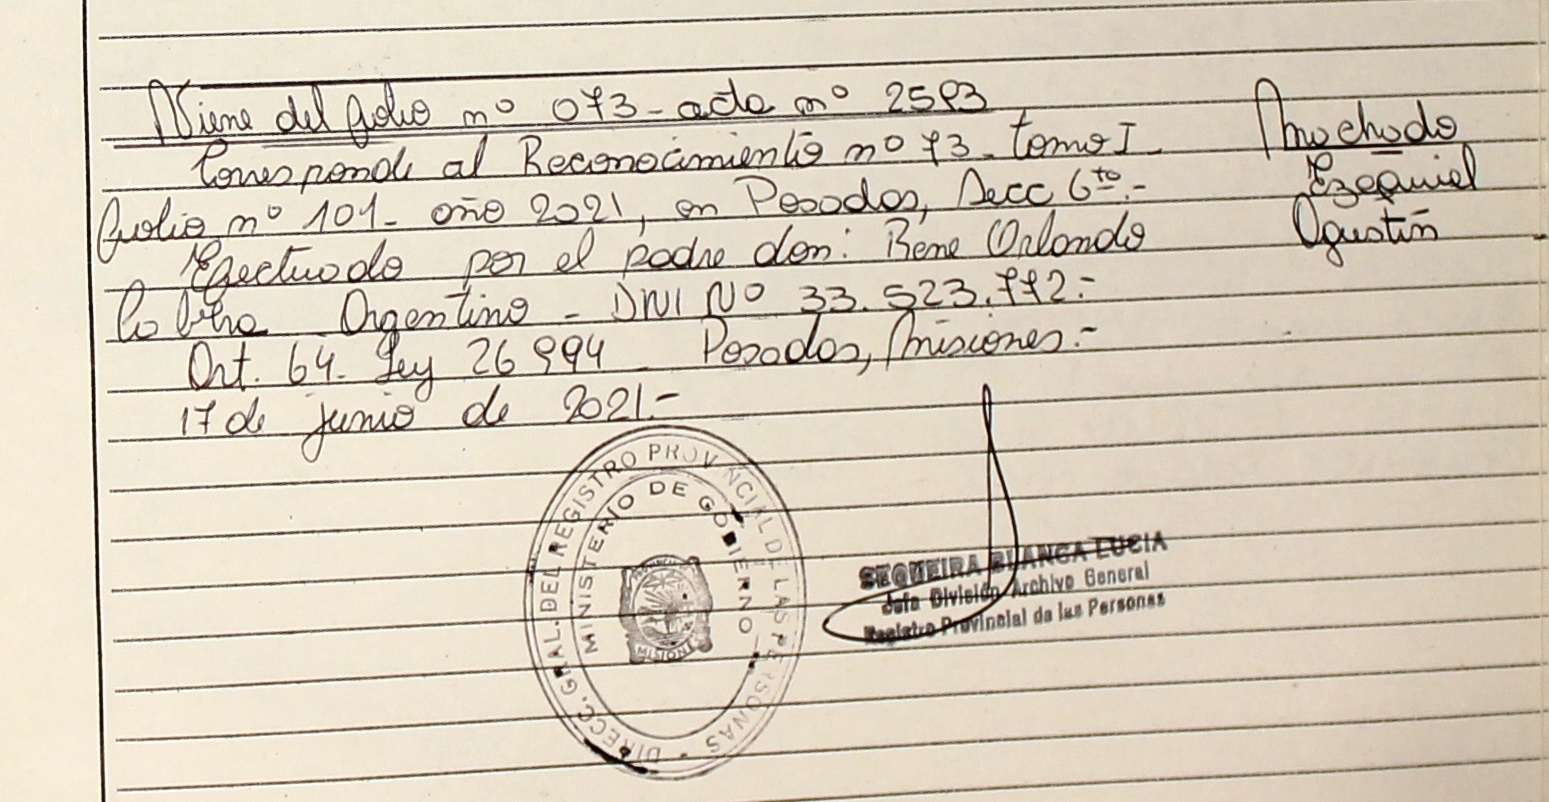 Viene del folio nº 073 - acta nº 2593
Corresponde al Reconocimiento nº 73 - tomo I
folio nº 101 - año 2021, en Posadas, Secc 6ta.-
Efectuado por el padre don: Rene Orlando
Argentino - DNI Nº 33.523.772.-
Art. 64. Ley 26994 - Posadas, Misiones.-
17 de junio de 2021.-
Machado
Ezequiel
Agustín
DIRECC. GRAL. DEL REGISTRO PROVINCIAL DE LAS PERSONAS
MINISTERIO DE GOBIERNO
MISIONES
SEQUEIRA BLANCA LUCIA
Jefa División Archivo General
Registro Provincial de las Personas